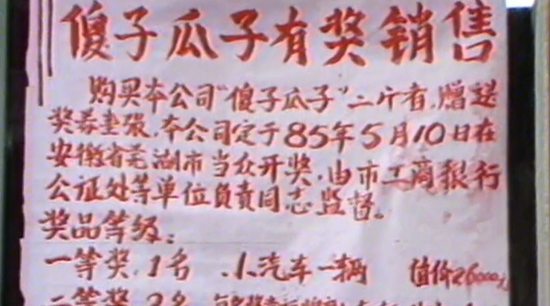 傻子瓜子有奖销售
购买本公司"傻子瓜子"二斤者,赠送
奖券壹张,本公司定于85年5月10日在
安徽省芜湖市当众开奖,由市工商银行
公证处等单位负责同志监督。
奖品等级:
一等奖,1名 小汽车一辆 值价26000元
二等奖 2名